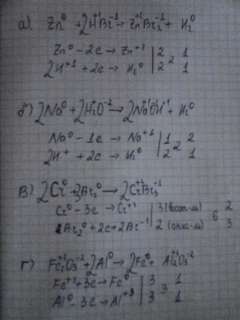 а) Zn⁰ + 2H⁺¹Br⁻¹ → Zn⁺²Br₂⁻¹ + H₂⁰
Zn⁰ - 2e → Zn⁺² | 2 | 2 | 1
2H⁺¹ + 2e → H₂⁰ | 2 | 2 | 1
б) 2Na⁰ + 2H₂O → 2NaOH + H₂⁰
Na⁰ - 1e → Na⁺¹ | 1 | 2 | 2
2H⁺ + 2e → H₂⁰ | 2 | 2 | 1
в) 2Cr⁰ + 3Br₂⁰ → 2Cr⁺³Br₃⁻¹
Cr⁰ - 3e → Cr⁺³ | 3 (восст-ль) | 6 | 2
Br₂⁰ + 2e → 2Br⁻¹ | 2 (окис-ль) | 6 | 3
г) Fe₂⁺³O₃⁻² + 2Al⁰ → 2Fe⁰ + Al₂⁺³O₃⁻²
Fe⁺³ + 3e → Fe⁰ | 3 | 3 | 1
Al⁰ - 3e → Al⁺³ | 3 | 3 | 1